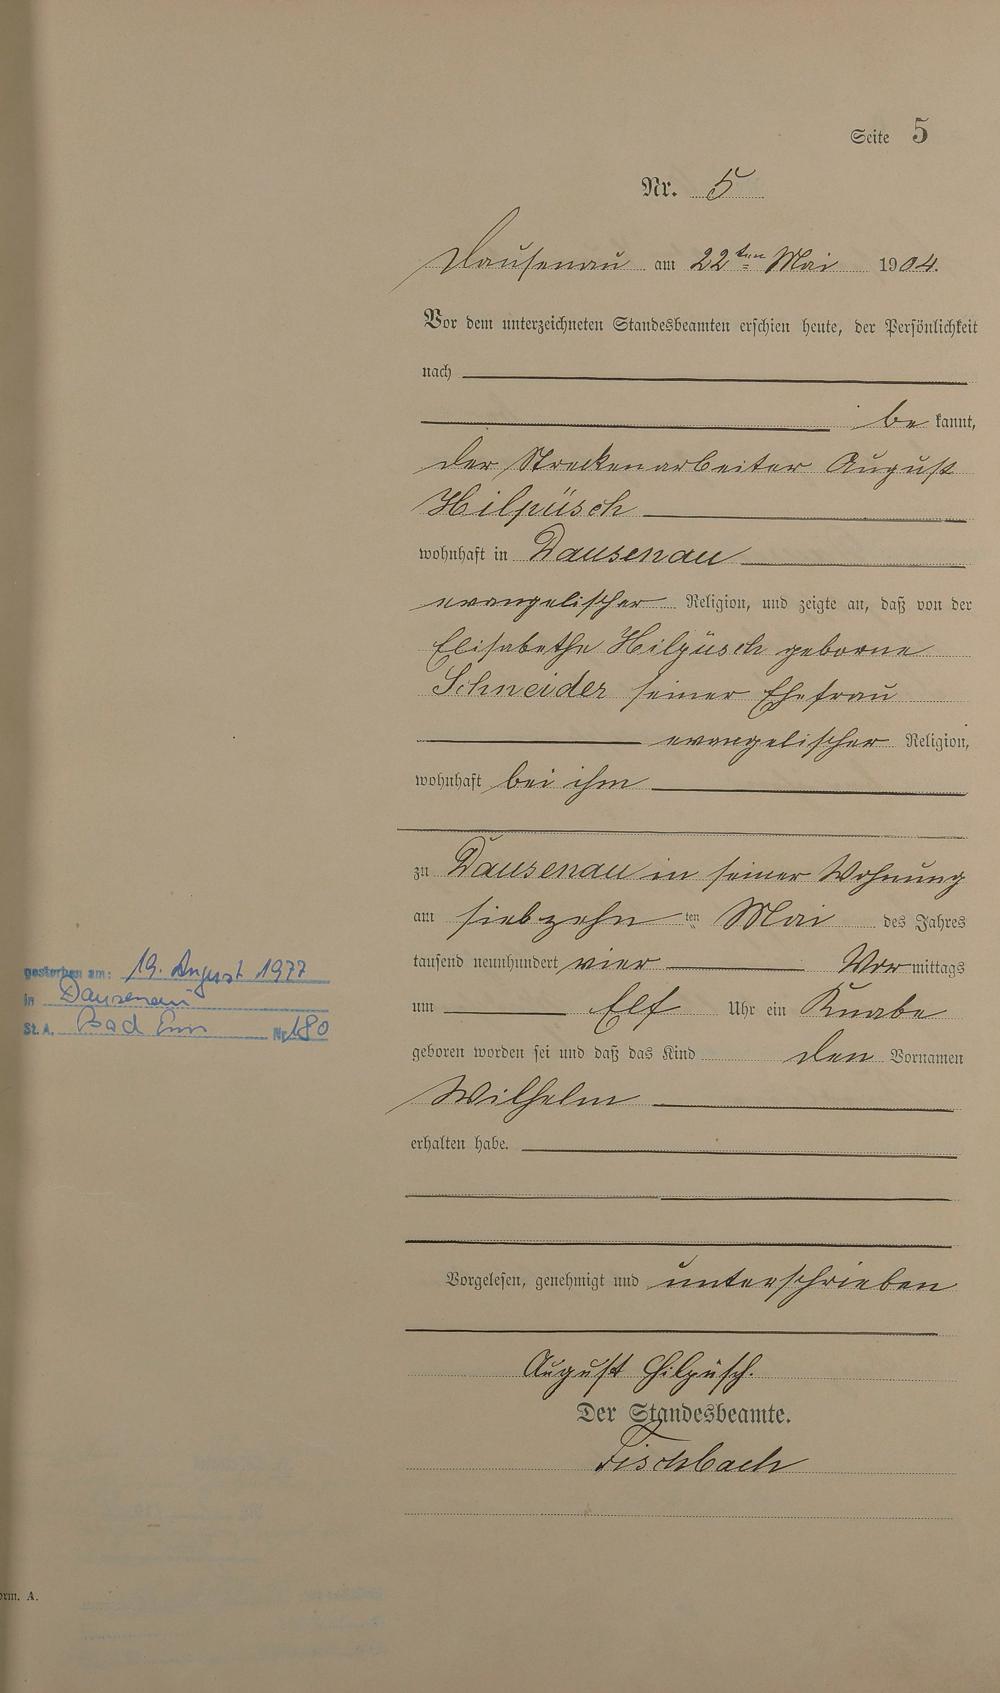 Seite 5
Nr. 5
Dausenau am 22ten Mai 1904.
Vor dem unterzeichneten Standesbeamten erschien heute, der Persönlichkeit
nach
be kannt,
der Streckenarbeiter August
Hilpüsch
wohnhaft in Dausenau
evangelischer Religion, und zeigte an, daß von der
Elisabethe Hilpüsch geborne
Schneider seiner Ehefrau
evangelischer Religion,
wohnhaft bei ihm
zu Dausenau in seiner Wohnung
am siebzehn ten Mai des Jahres
tausend neunhundert vier Vor mittags
um Elf Uhr ein Knabe
geboren worden sei und daß das Kind den Vornamen
Wilhelm
erhalten habe.
Vorgelesen, genehmigt und unterschrieben
August Hilpüsch.
Der Standesbeamte.
Fischbach
gestorben am: 19. August 1977
in Dausenau
St. A. Bad Ems Nr. 180
orm. A.